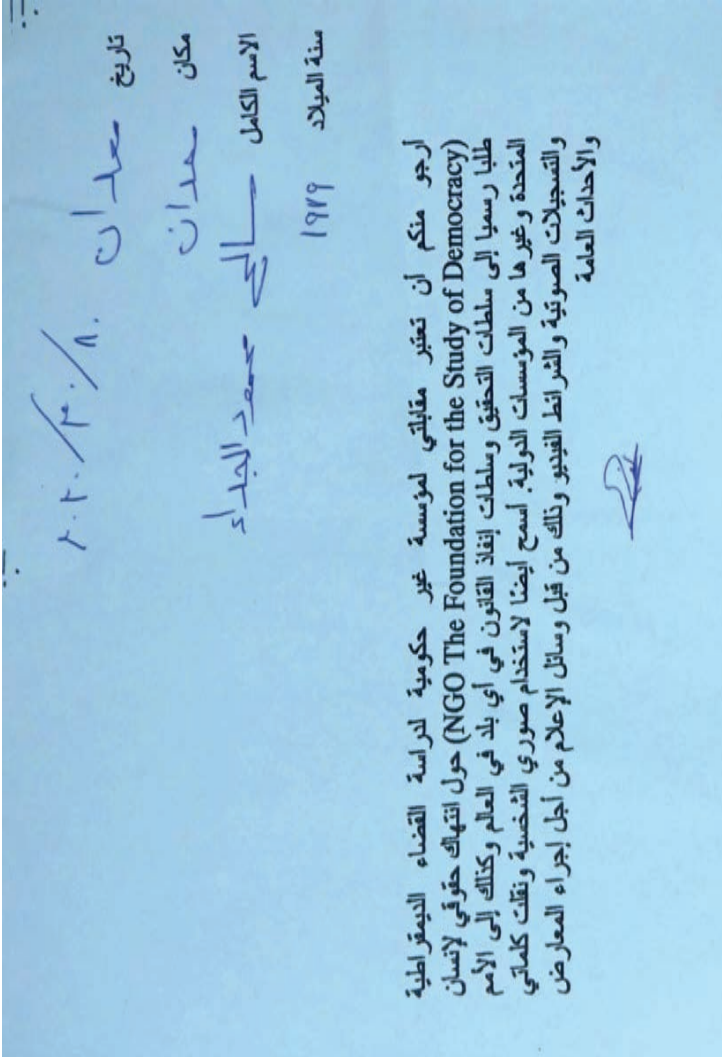 تاريخ معدان
مكان معدان
الاسم الكامل محمود
سنة الميلاد ١٩٧٩
أرجو منكم أن تعتبر مقابلتي لمؤسسة غير حكومية لدراسة القضاء الديمقراطية
(NGO The Foundation for the Study of Democracy) حول انتهاك حقوقي لإنسان
طلبا رسميا إلى سلطات التحقيق وسلطات إنفاذ القانون في أي بلد في العالم وكذلك إلى الأمم
المتحدة وغيرها من المؤسسات الدولية. اسمح أيضا لاستخدام صوري الشخصية ونقلت كلماتي
والتسجيلات الصوتية والشرائط الفيديو وذلك من قبل وسائل الإعلام من أجل إجراء المعارض
والأحداث العامة